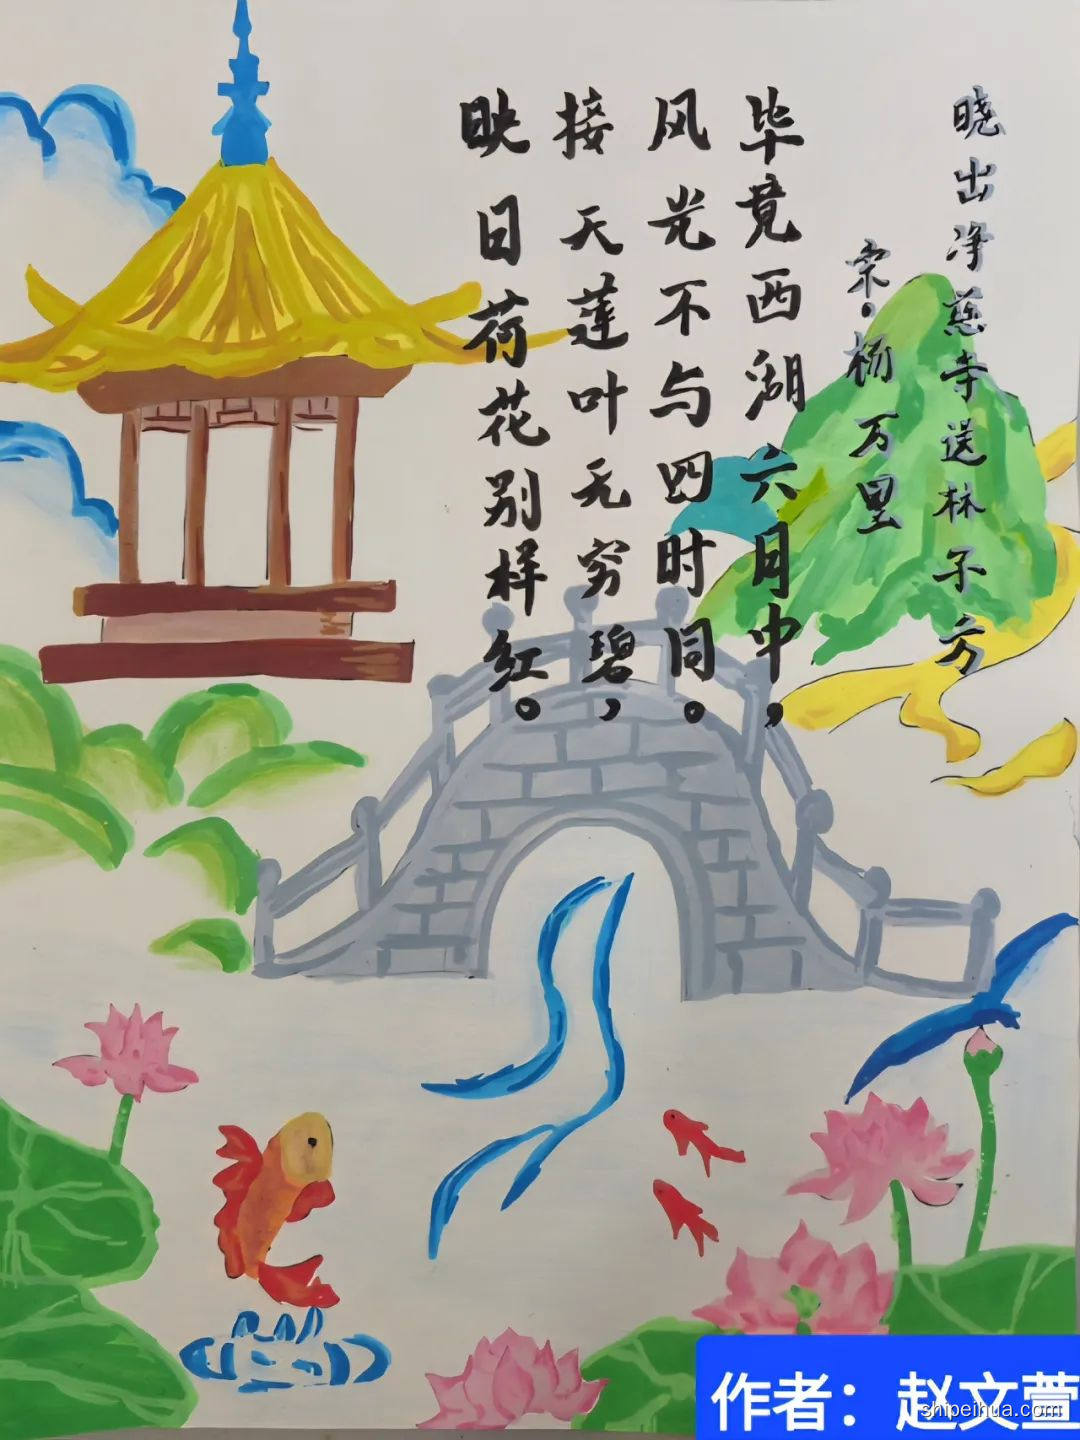 晓出净慈寺送林子方
宋。杨万里
毕竟西湖六月中，
风光不与四时同。
接天莲叶无穷碧，
映日荷花别样红。
作者：赵文萱
shipeihua.com